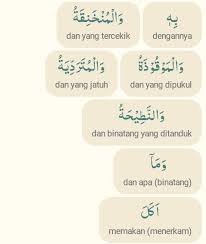 بِهٖ وَالْمُنْخَنِقَةُ
dengannya dan yang tercekik
وَالْمَوْقُوْذَةُ وَالْمُتَرَدِّيَةُ
dan yang dipukul dan yang jatuh
وَالنَّطِيْحَةُ
dan binatang yang ditanduk
وَمَآ
dan apa (binatang)
اَكَلَ
memakan (menerkam)